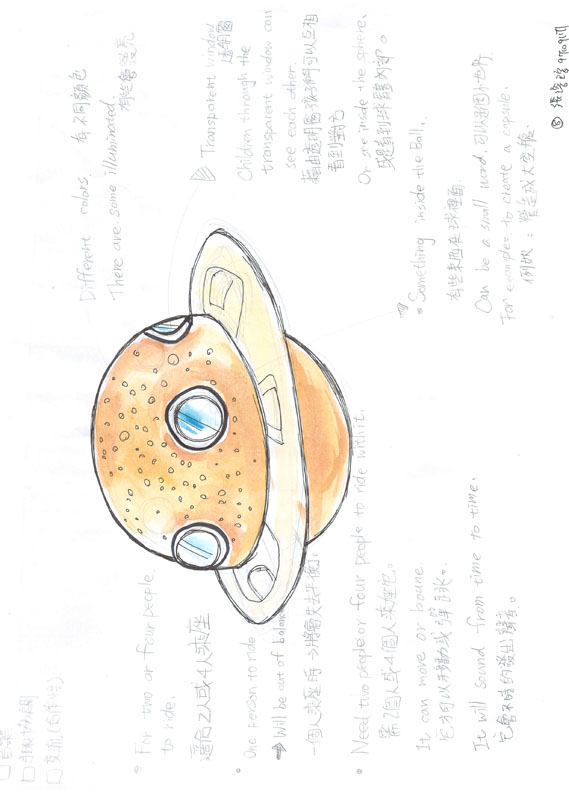 Different colors. 有不同顏色
There are some illuminated.
有些會發亮
Transparent window
透明窗
Children through the
transparent window can
see each other.
藉由透明窗孩子們可以互相
看到對方
Or see inside the sphere.
或是看到球體內部。
• Something inside the Ball.
有些東西在球裡面
Can be a small word. 可以是個小世界
For example: to create a capsule.
例如:營造成太空艙.
• For two or four people
to ride.
適合2人或4人乘座
• One person to ride
→ Will be out of balance
一個人乘座時→將會失去平衡。
• Need two people or four people to ride with it.
需2個人或4個人乘座它。
It can move or bounce
它才可以移動或彈跳。
It will sound from time to time.
它會不時的發出聲音。